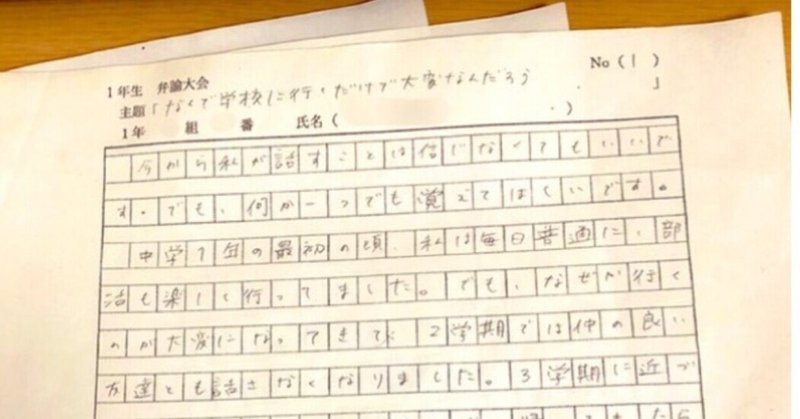 No(1)
1年生 弁論大会
主題「なんで学校に行くだけで大変なんだろう」
1年 組 番 氏名( )
今から私が話すことは信じなくてもいいで
す。でも、何か一つでも覚えてほしいです。
中学1年の最初の頃、私は毎日普通に、部
活も楽しく行ってました。でも、なぜか行く
のが大変になってきて、2学期では仲の良い
友達とも話さなくなりました。3学期に近づ